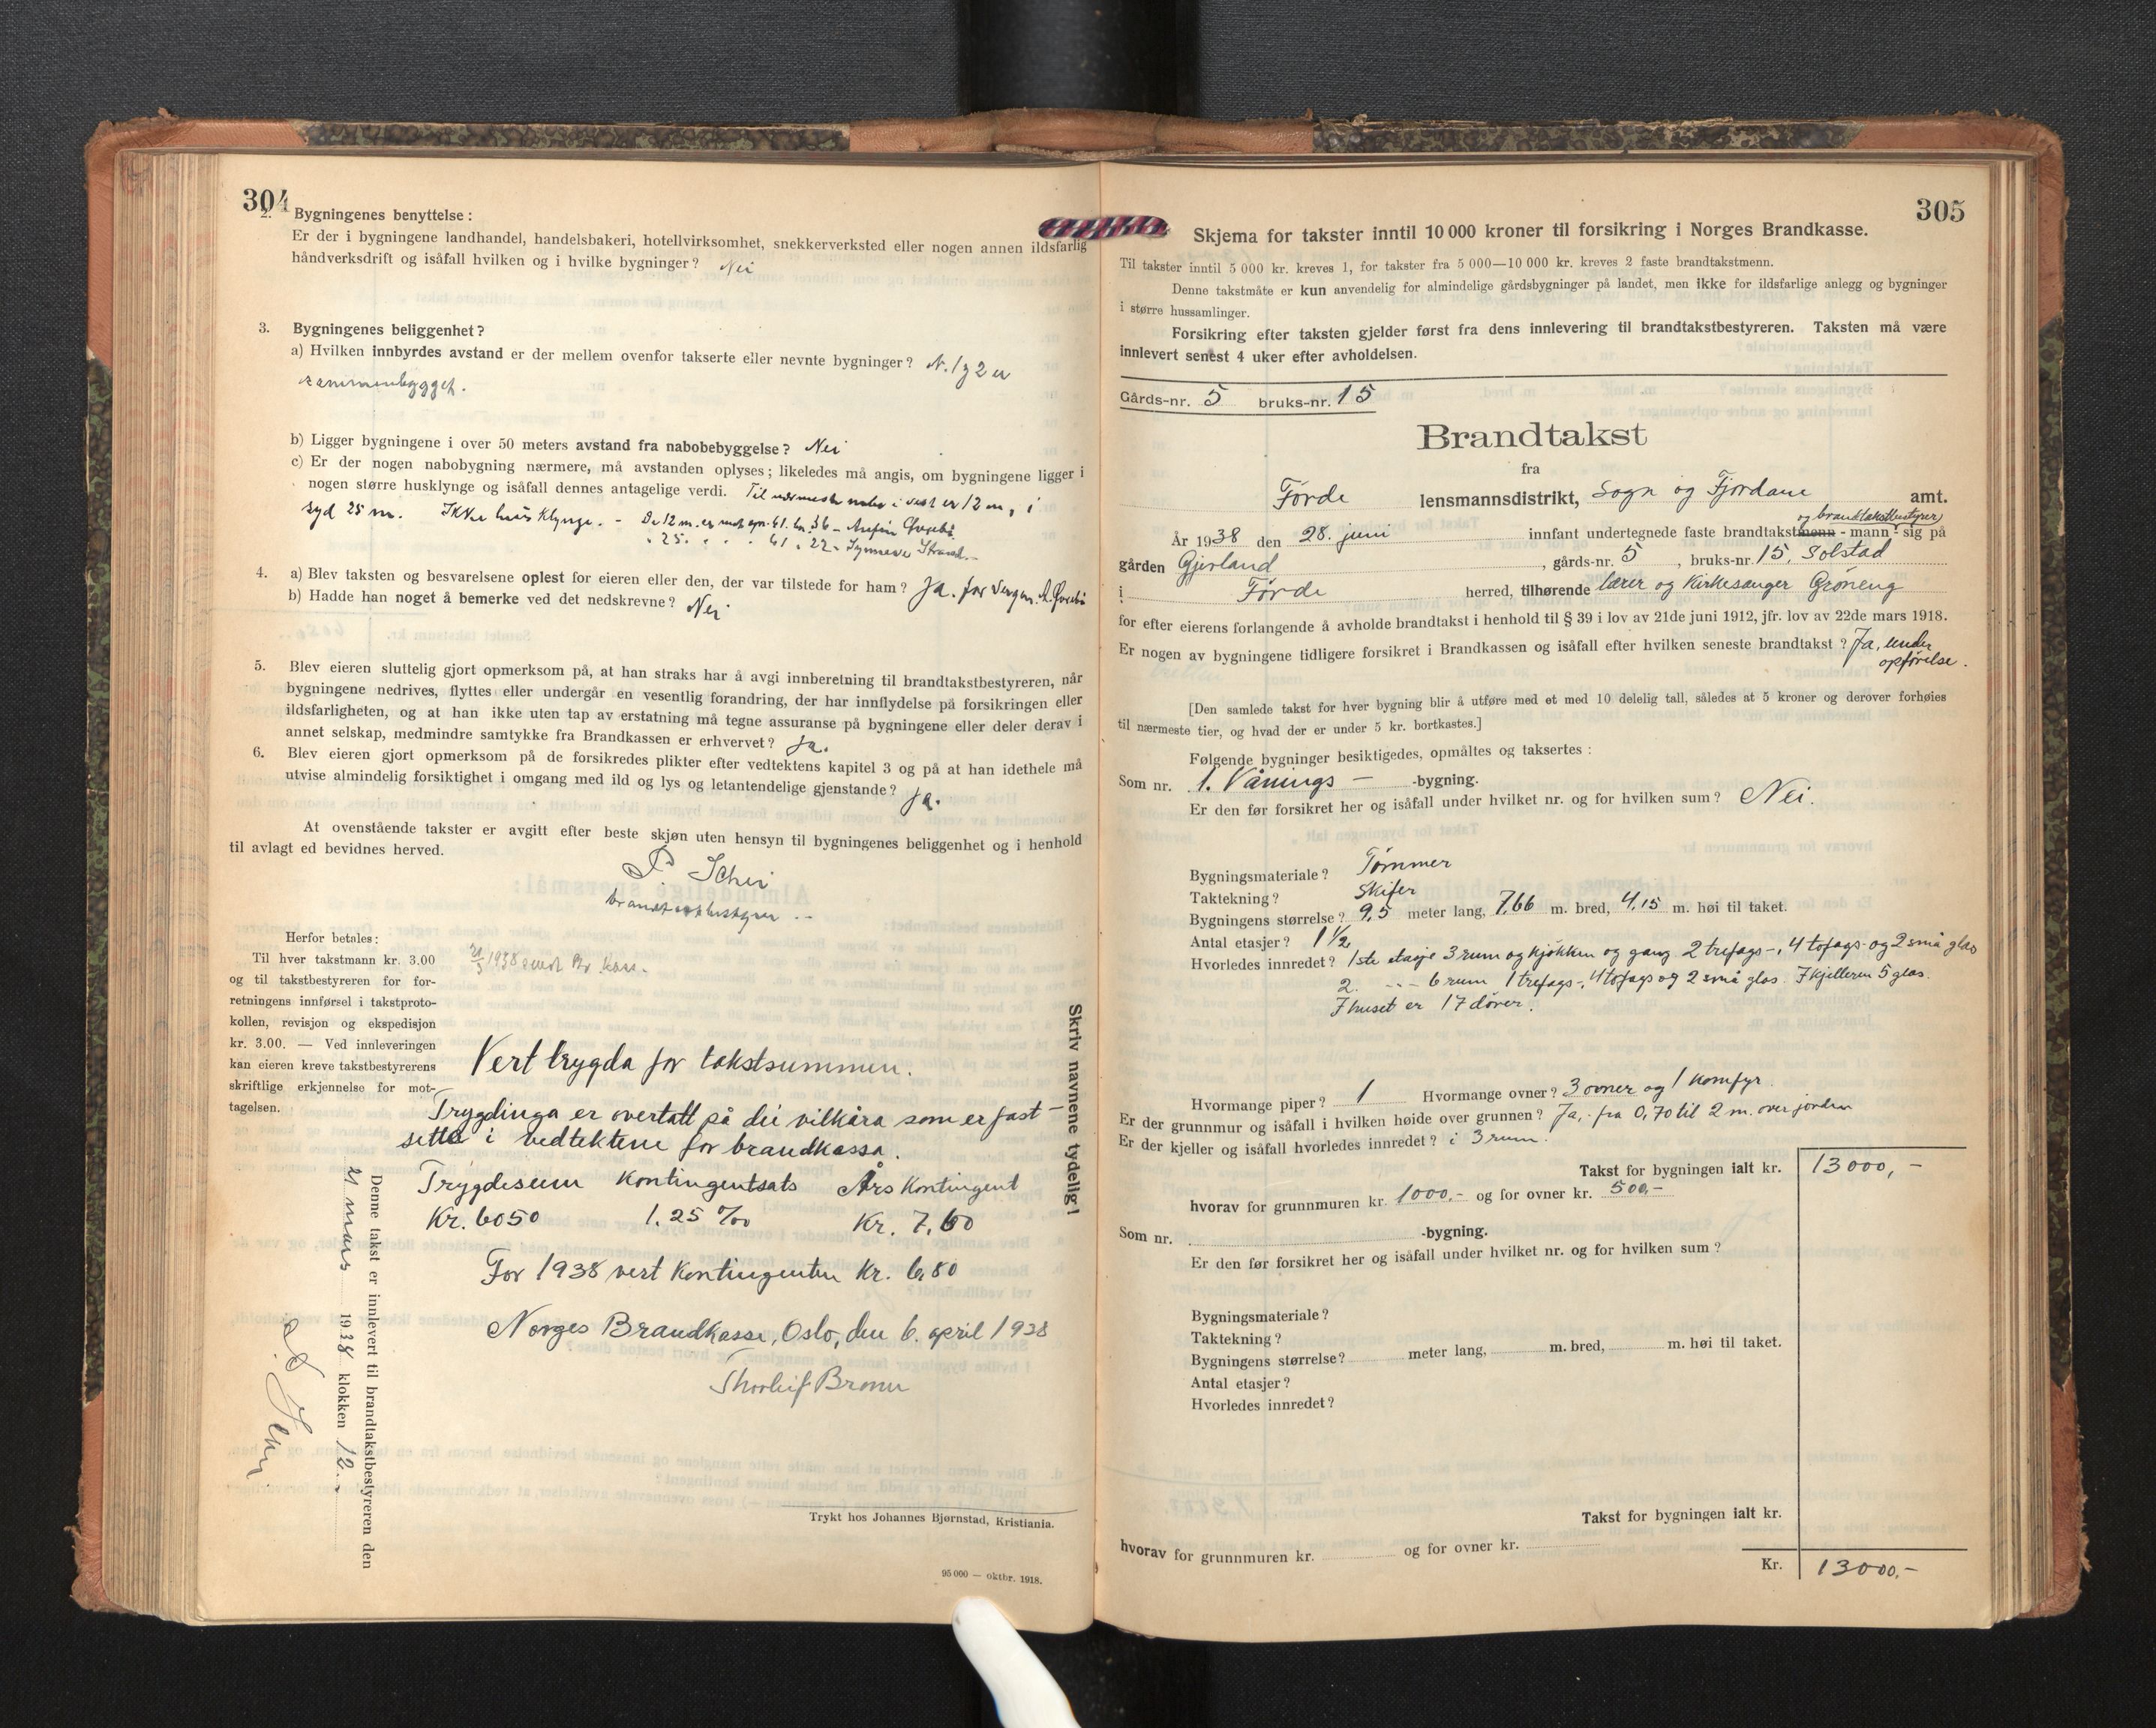 304
2. Bygningenes benyttelse:
Er der i bygningene landhandel, handelsbakeri, hotellvirksomhet, snekkerverksted eller nogen annen ildsfarlig
håndverksdrift og isåfall hvilken og i hvilke bygninger? Nei
3. Bygningenes beliggenhet?
a) Hvilken innbyrdes avstand er der mellem ovenfor takserte eller nevnte bygninger? N. 1 og 2 er
sammenbygget.
b) Ligger bygningene i over 50 meters avstand fra nabobebyggelse? Nei
c) Er der nogen nabobygning nærmere, må avstanden oplyses; likeledes må angis, om bygningene ligger i
nogen større husklynge og isåfall dennes antagelige verdi. Til nærmeste nabo i vest er 12 m, i
syd 25 m. Ikke husklynge. - De 12 m. er mot gn. 61. bn. 36 -
" 25. " " " 61 " 22 - Synneve Strand.-
4. a) Blev taksten og besvarelsene oplest for eieren eller den, der var tilstede for ham? Ja. for
b) Hadde han noget å bemerke ved det nedskrevne? Nei
5. Blev eieren sluttelig gjort opmerksom på, at han straks har å avgi innberetning til brandtakstbestyreren, når
bygningene nedrives, flyttes eller undergår en vesentlig forandring, der har innflydelse på forsikringen eller
ildsfarligheten, og at han ikke uten tap av erstatning må tegne assuranse på bygningene eller deler derav i
annet selskap, medmindre samtykke fra Brandkassen er erhvervet? Ja.
6. Blev eieren gjort opmerksom på de forsikredes plikter efter vedtektens kapitel 3 og på at han idethele må
utvise almindelig forsiktighet i omgang med ild og lys og letantendelige gjenstande? Ja.
At ovenstående takster er avgitt efter beste skjøn uten hensyn til bygningenes beliggenhet og i henhold
til avlagt ed bevidnes herved.
P. Schei
brandtakstbestyrer --
Herfor betales:
Til hver takstmann kr. 3.00
og til takstbestyreren for for-
retningens innførsel i takstproto-
kollen, revisjon og ekspedisjon
kr. 3.00. — Ved innleveringen
kan eieren kreve takstbestyrerens
skriftlige erkjennelse for mot-
tagelsen.
21/3 1938 sendt Br. kase.
Vert trygda for takstsummen.
Trygdinga er overtatt på dei vilkåra som er fast-
sette i vedtektene for brandkassa.
Trygdesum Kontingentsats Års Kontingent
Kr. 6050 1.25 ‰ Kr. 7,60
For 1938 vert Kontingenten Kr. 6,80
Norges Brandkasse, Oslo, den 6. april 1938
Skriv navnene tydelig!
Denne takst er innlevert til brandtakstbestyreren den
21 mars 1938 klokken 12.
P. Schei
Trykt hos Johannes Bjørnstad, Kristiania.
95 000 — oktbr. 1918.
305
Skjema for takster inntil 10 000 kroner til forsikring i Norges Brandkasse.
Til takster inntil 5 000 kr. kreves 1, for takster fra 5 000—10 000 kr. kreves 2 faste brandtakstmenn.
Denne takstmåte er kun anvendelig for almindelige gårdsbygninger på landet, men ikke for ildsfarlige anlegg og bygninger
i større hussamlinger.
Forsikring efter taksten gjelder først fra dens innlevering til brandtakstbestyreren. Taksten må være
innlevert senest 4 uker efter avholdelsen.
Gårds-nr. 5 bruks-nr. 15
Brandtakst
fra
Førde lensmannsdistrikt, Sogn og Fjordane amt.
og brandtakstbestyrer
År 1938 den 28. juni innfant undertegnede faste brandtakstmenn - mann - sig på
gården Gjerland, gårds-nr. 5, bruks-nr. 15, Solstad
i Førde herred, tilhørende lærer og Kirkesanger Grøneng
for efter eierens forlangende å avholde brandtakst i henhold til § 39 i lov av 21de juni 1912, jfr. lov av 22de mars 1918.
Er nogen av bygningene tidligere forsikret i Brandkassen og isåfall efter hvilken seneste brandtakst? Ja, under
opførelse.
[Den samlede takst for hver bygning blir å utføre med et med 10 delelig tall, således at 5 kroner og derover forhøies
til nærmeste tier, og hvad der er under 5 kr. bortkastes.]
Følgende bygninger besiktigedes, opmåltes og taksertes:
Som nr. 1. Vånings - -bygning.
Er den før forsikret her og isåfall under hvilket nr. og for hvilken sum? Nei.
Bygningsmateriale? Tømmer
Taktekning? Skifer
Bygningens størrelse? 9,5 meter lang, 7,66 m. bred, 4,15 m. høi til taket.
Antal etasjer? 1 1/2
Hvorledes innredet? 1ste etasje 3 rum og kjøkken og gang 2 trefags-, 4 tofags- og 2 små glas
2. -"- 6 rum 1 trefags-, 4 tofags og 2 små glas. I kjelleren 5 glas.
I huset er 17 dører.
Hvormange piper? 1 Hvormange ovner? 3 ovner og 1 komfyr.
Er der grunnmur og isåfall i hvilken høide over grunnen? Ja, fra 0,70 til 2 m. over jorden
Er der kjeller og isåfall hvorledes innredet? i 3 rum.
Takst for bygningen ialt kr. 13000,-
hvorav for grunnmuren kr. 1000.- og for ovner kr. 500,-
Som nr. -bygning.
Er den før forsikret her og isåfall under hvilket nr. og for hvilken sum?
Bygningsmateriale?
Taktekning?
Bygningens størrelse? meter lang, m. bred, m. høi til taket.
Antal etasjer?
Hvorledes innredet?
Takst for bygningen ialt kr.
hvorav for grunnmuren kr. og for ovner kr.
Kr. 13000.-